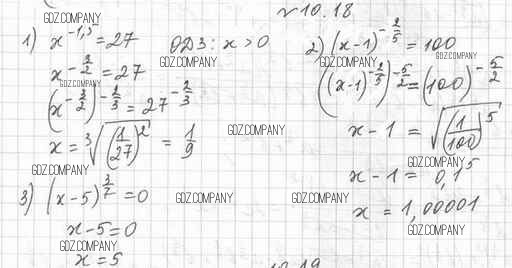 № 10.18
GDZ.COMPANY
1) x^{-1,5} = 27 ОДЗ: x > 0
GDZ.COMPANY
x^{-\frac{3}{2}} = 27
GDZ.COMPANY
(x^{-\frac{3}{2}})^{-\frac{2}{3}} = 27^{-\frac{2}{3}}
x = \sqrt[3]{(\frac{1}{27})^2} = \frac{1}{9}
GDZ.COMPANY
GDZ.COMPANY
3) (x-5)^{\frac{3}{7}} = 0
GDZ.COMPANY
x-5=0
GDZ.COMPANY
x = 5
2) (x-1)^{-\frac{2}{5}} = 100
GDZ.COMPANY
GDZ.COMPANY
((x-1)^{-\frac{2}{5}})^{-\frac{5}{2}} = (100)^{-\frac{5}{2}}
x-1 = \sqrt{(\frac{1}{100})^5}
GDZ.COMPANY
x-1 = 0,1^5
GDZ.COMPANY
x = 1,00001
GDZ.COMPANY
10.19